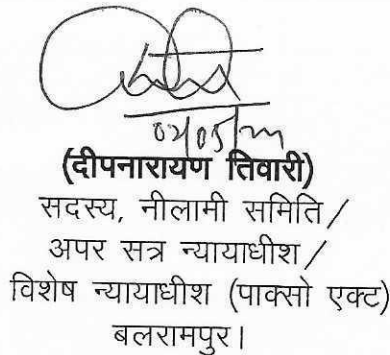 (दीपनारायण तिवारी)
सदस्य, नीलामी समिति/
अपर सत्र न्यायाधीश/
विशेष न्यायाधीश (पाक्सो एक्ट)
बलरामपुर।